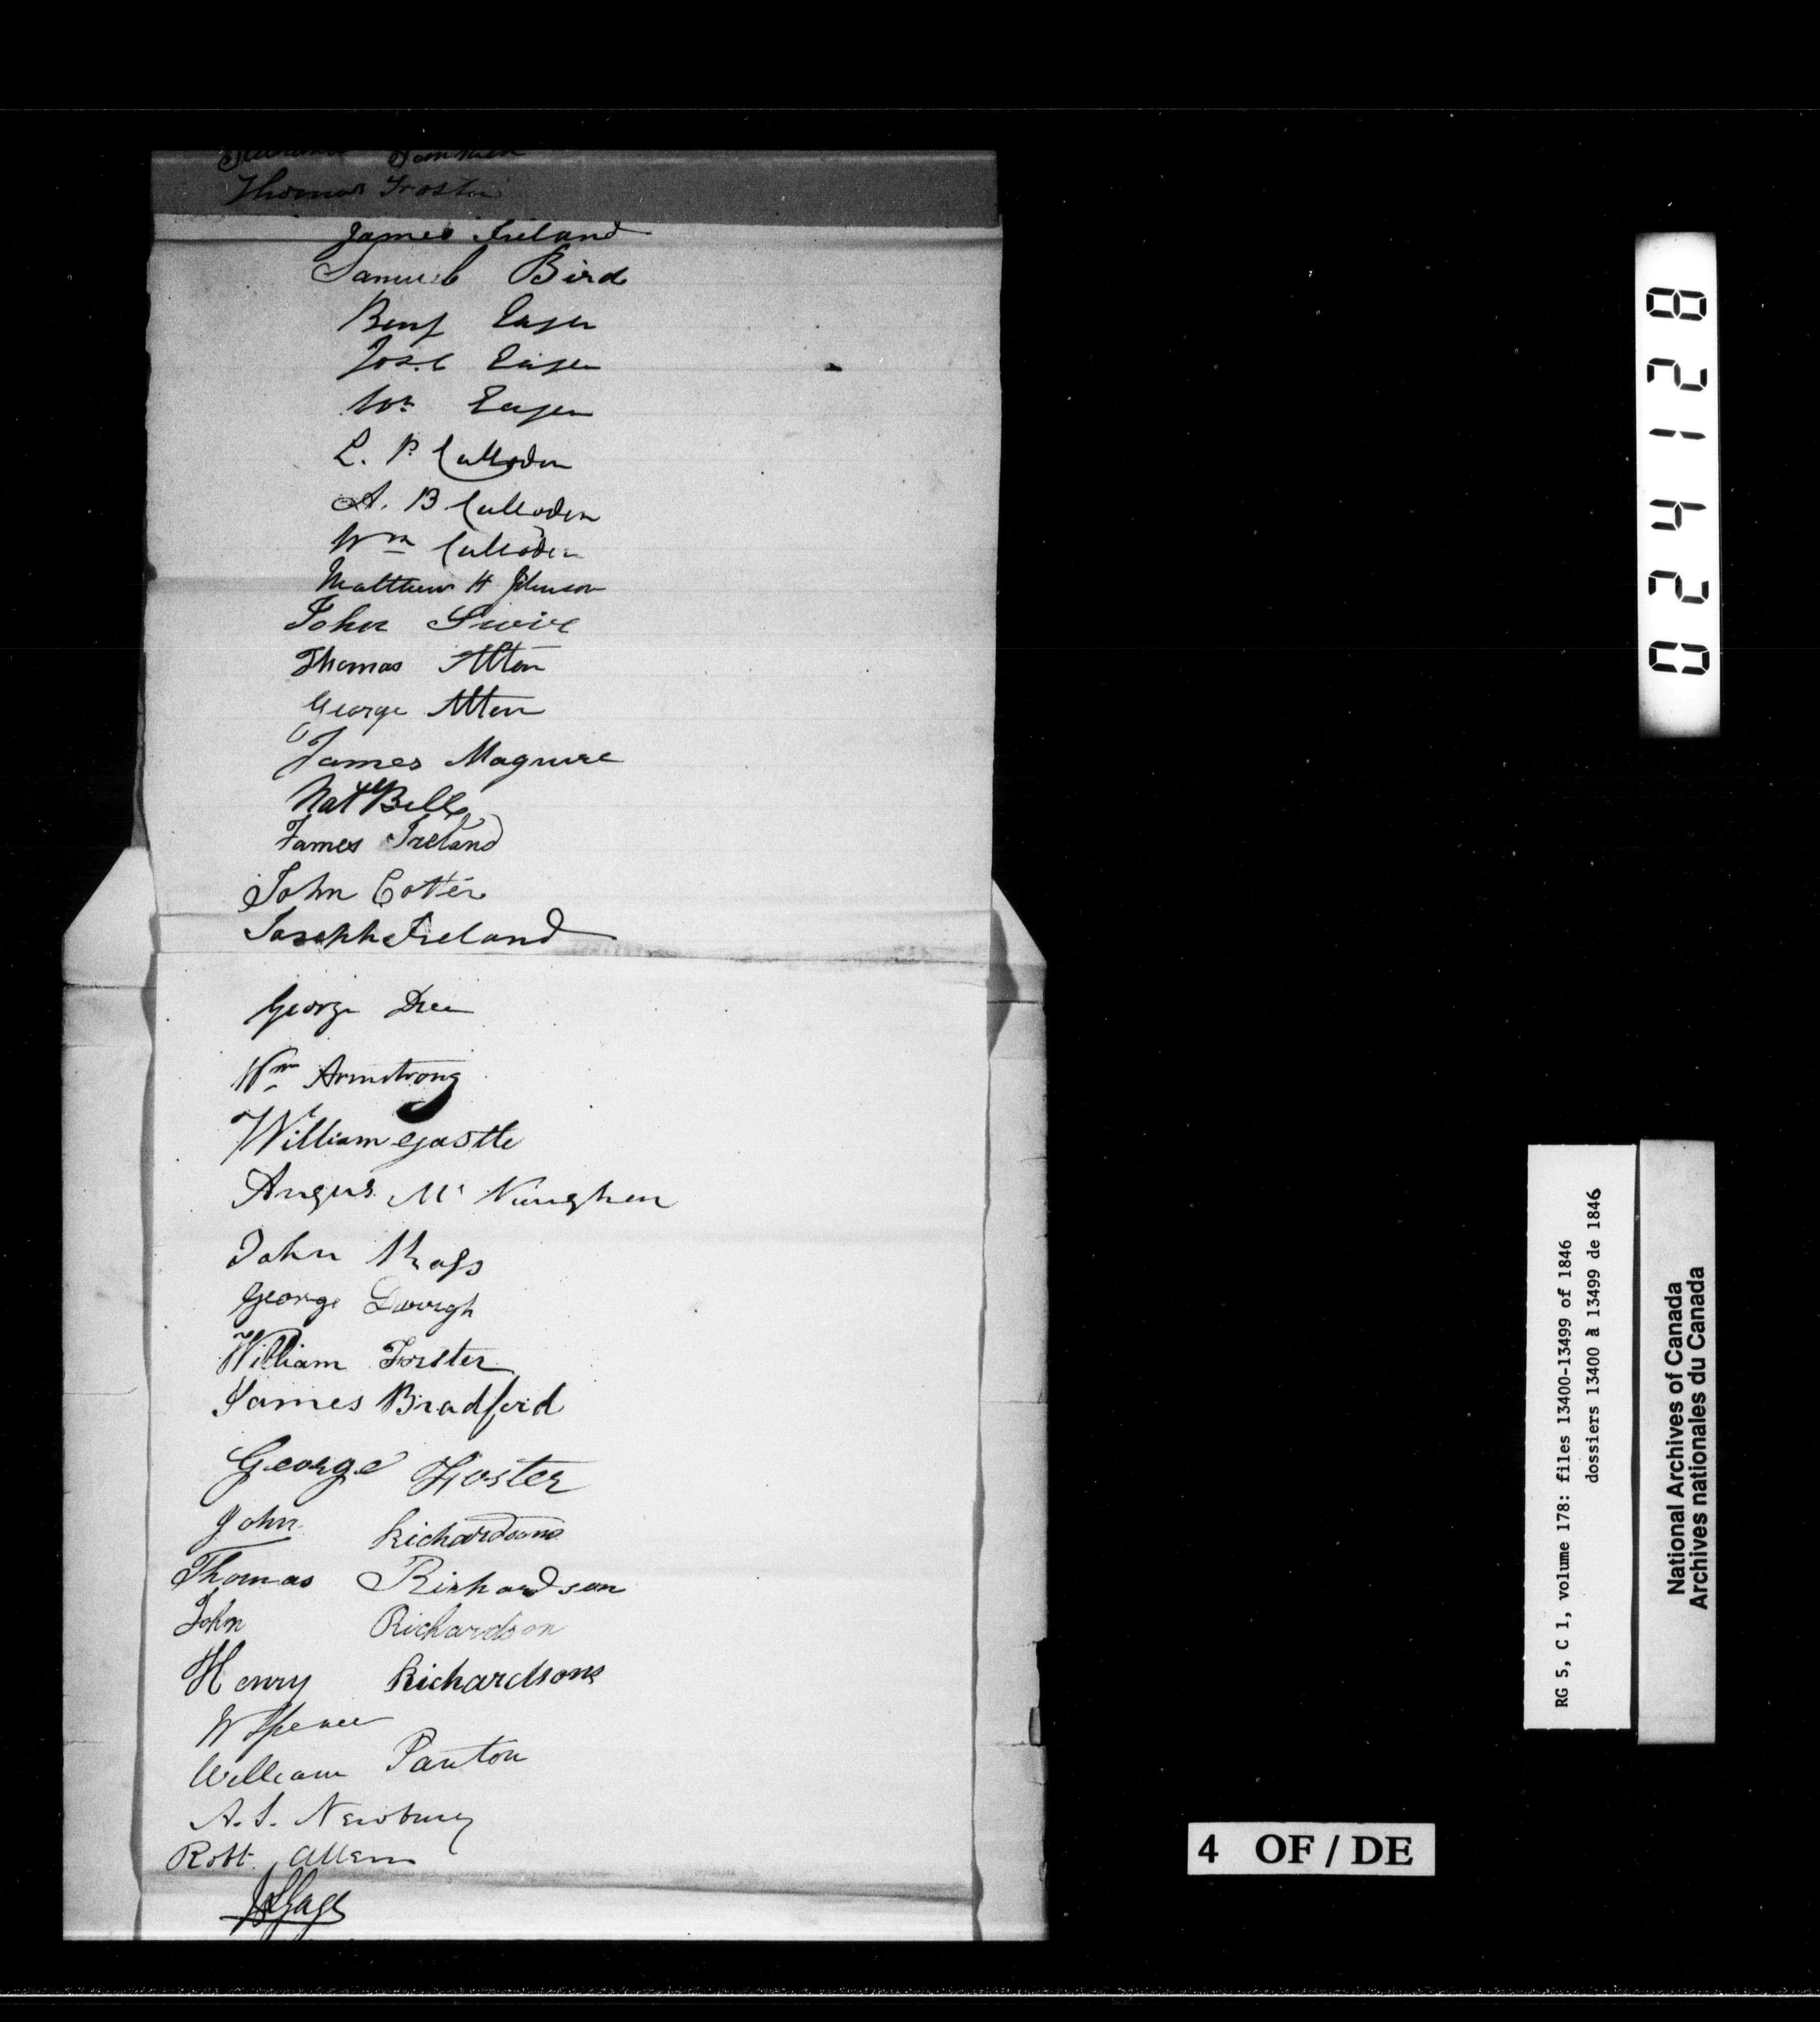 Thomas Foster
James Ireland
Samuel Bird
Benj Eager
Jos. C Eager
Wm Eager
L. P. Culloden
A. B Culloden
Wm Culloden
Matthew H Johnson
John
Thomas Atton
George Atton
James Maguire
Natl Bell
James Ireland
John Cotter
Joseph Ireland
George
Wm Armstrong
William
Angus Mc Naughen
John
George
William Forster
James Bradford
George Foster
John Richardson
Thomas Richardson
John Richardson
Henry Richardsons
W Spence
William Panton
A. S. Newbury
Robt. Allen
Gage
024128
RG 5, C 1, volume 178: files 13400-13499 of 1846
dossiers 13400 à 13499 de 1846
National Archives of Canada
Archives nationales du Canada
4 OF / DE